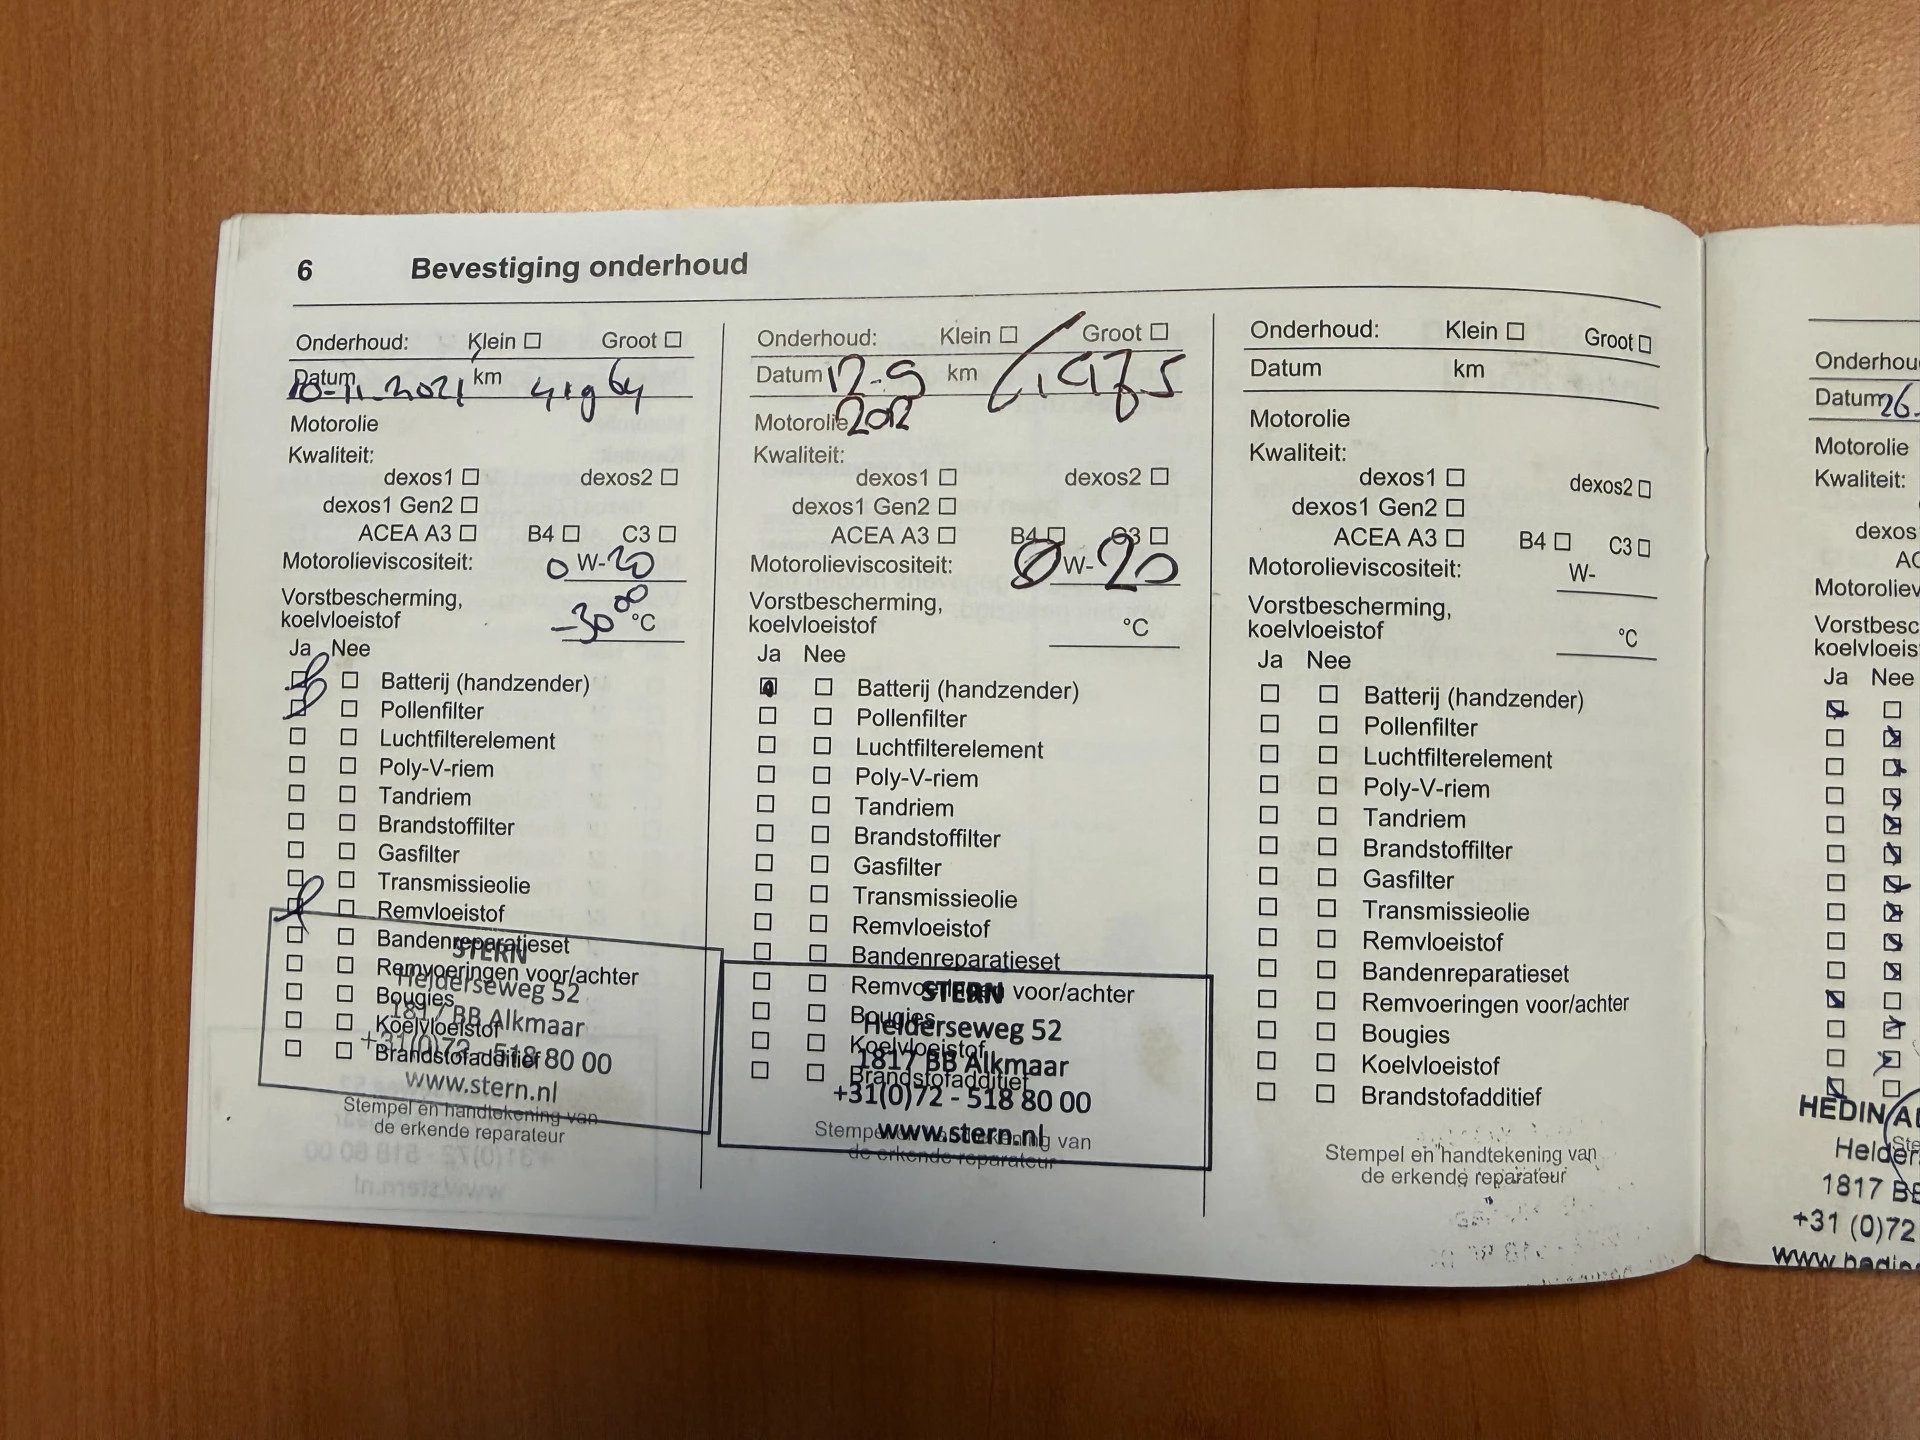 6 Bevestiging onderhoud
Onderhoud: Klein Groot
Datum 10-11-2021 km 41964
Motorolie
Kwaliteit:
dexos1 dexos2
dexos1 Gen2
ACEA A3 B4 C3
Motorolieviscositeit: 0 W-20
Vorstbescherming,
koelvloeistof -30 °C
Ja Nee
Batterij (handzender)
Pollenfilter
Luchtfilterelement
Poly-V-riem
Tandriem
Brandstoffilter
Gasfilter
Transmissieolie
Remvloeistof
Bandenreparatieset
STERN
Remvoeringen voor/achter
Helderseweg 52
Bougies
1817 BB Alkmaar
Koelvloeistof
+31(0)72 - 518 80 00
Brandstofadditief
www.stern.nl
Stempel en handtekening van
de erkende reparateur
Onderhoud: Klein Groot
Datum 12-9 km
Motorolie
Kwaliteit:
dexos1 dexos2
dexos1 Gen2
ACEA A3 B4 C3
Motorolieviscositeit: 0 W-20
Vorstbescherming,
koelvloeistof °C
Ja Nee
Batterij (handzender)
Pollenfilter
Luchtfilterelement
Poly-V-riem
Tandriem
Brandstoffilter
Gasfilter
Transmissieolie
Remvloeistof
Bandenreparatieset
Remvoeringen voor/achter
STERN
Bougies
Helderseweg 52
Koelvloeistof
1817 BB Alkmaar
Brandstofadditief
+31(0)72 - 518 80 00
www.stern.nl
Stempel en handtekening van
de erkende reparateur
Onderhoud: Klein Groot
Datum km
Motorolie
Kwaliteit:
dexos1 dexos2
dexos1 Gen2
ACEA A3 B4 C3
Motorolieviscositeit: W-
Vorstbescherming,
koelvloeistof °C
Ja Nee
Batterij (handzender)
Pollenfilter
Luchtfilterelement
Poly-V-riem
Tandriem
Brandstoffilter
Gasfilter
Transmissieolie
Remvloeistof
Bandenreparatieset
Remvoeringen voor/achter
Bougies
Koelvloeistof
Brandstofadditief
Stempel en handtekening van
de erkende reparateur
Onderhou
Datum 26
Motorolie
Kwaliteit:
dexos
AC
Motoroliev
Vorstbesc
koelvloeis
Ja Nee
HEDIN AU
Helder
1817 BB
+31 (0)72
www.hedin